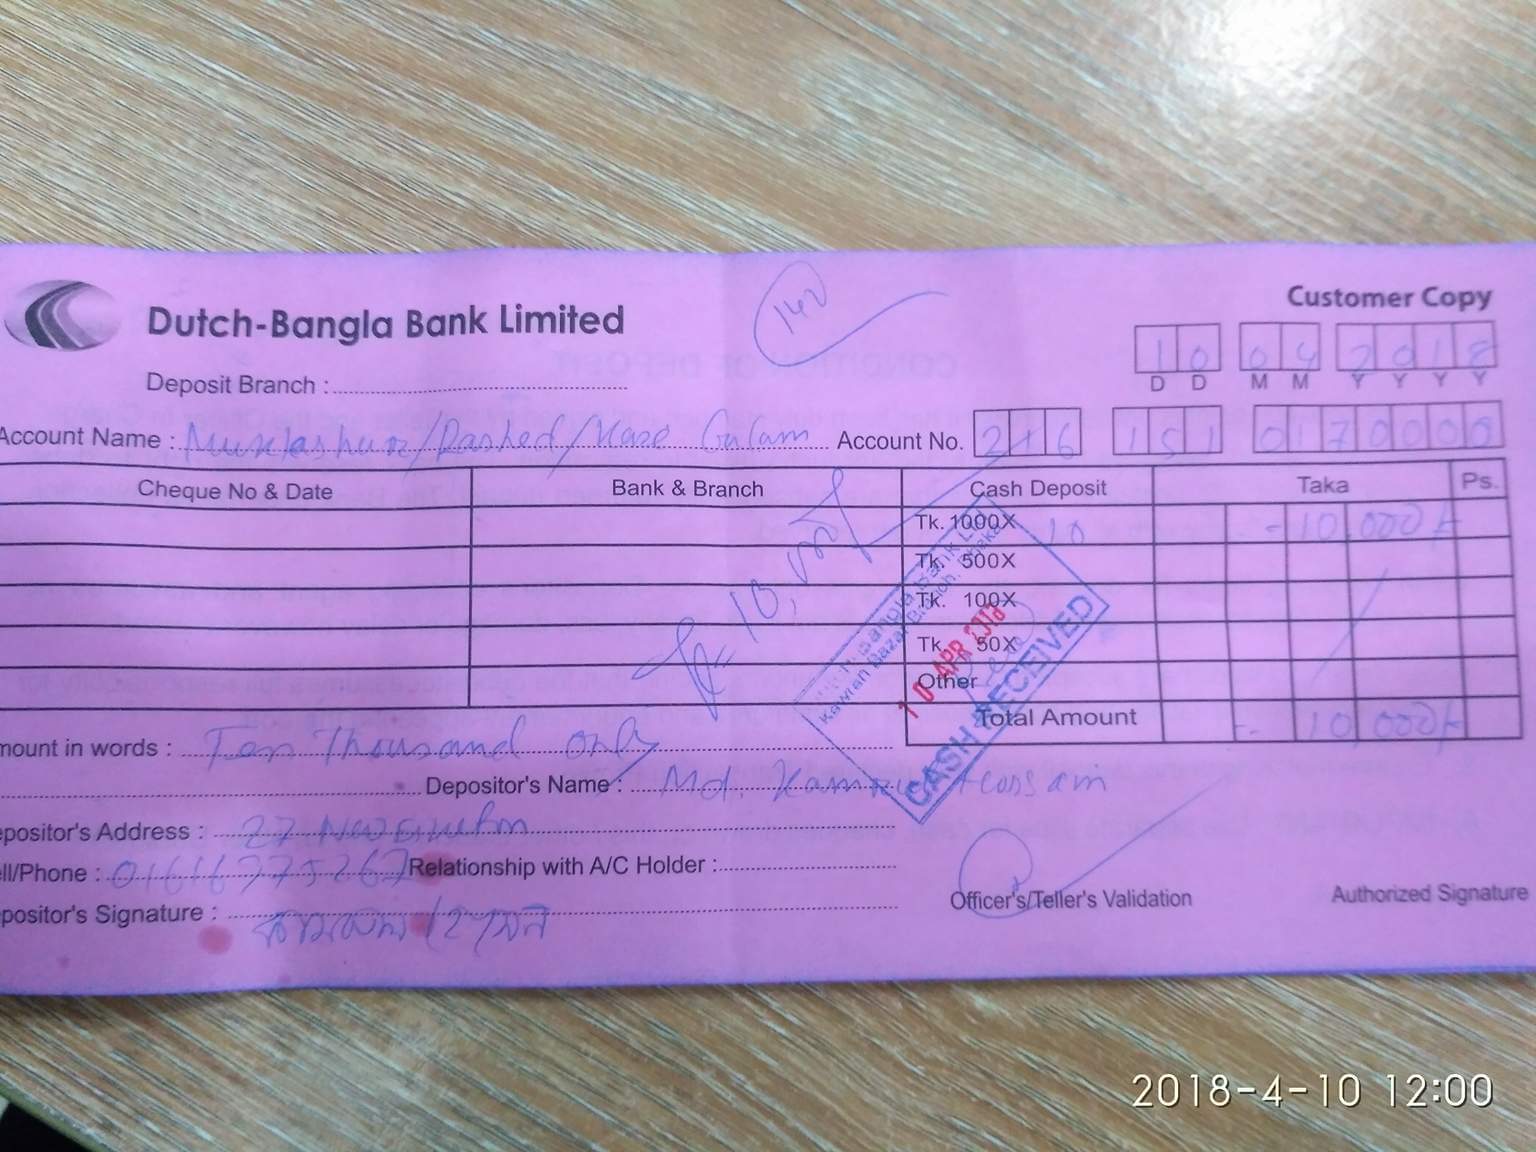 Customer Copy
Dutch-Bangla Bank Limited
142
10 04 2018
D D M M Y Y Y Y
Deposit Branch :
Account Name : /Rashed/ Account No. 216 151 0170000
Cheque No & Date Bank & Branch Cash Deposit Taka Ps.
Tk. 1000X 10 - 10,000/-
Tk. 500X
Tk. 100X
Tk. 50X
Other
Total Amount - 10,000/-
Bangla Bank Ltd.
Kawran Bazar Branch, Dhaka
10 APR 2018
CASH RECEIVED
mount in words : Ten Thousand only
Depositor's Name : Md. Kamrul Hossain
epositor's Address : 27
ell/Phone : 01616775267 Relationship with A/C Holder :
positor's Signature :
Officer's/Teller's Validation Authorized Signature
2018-4-10 12:00